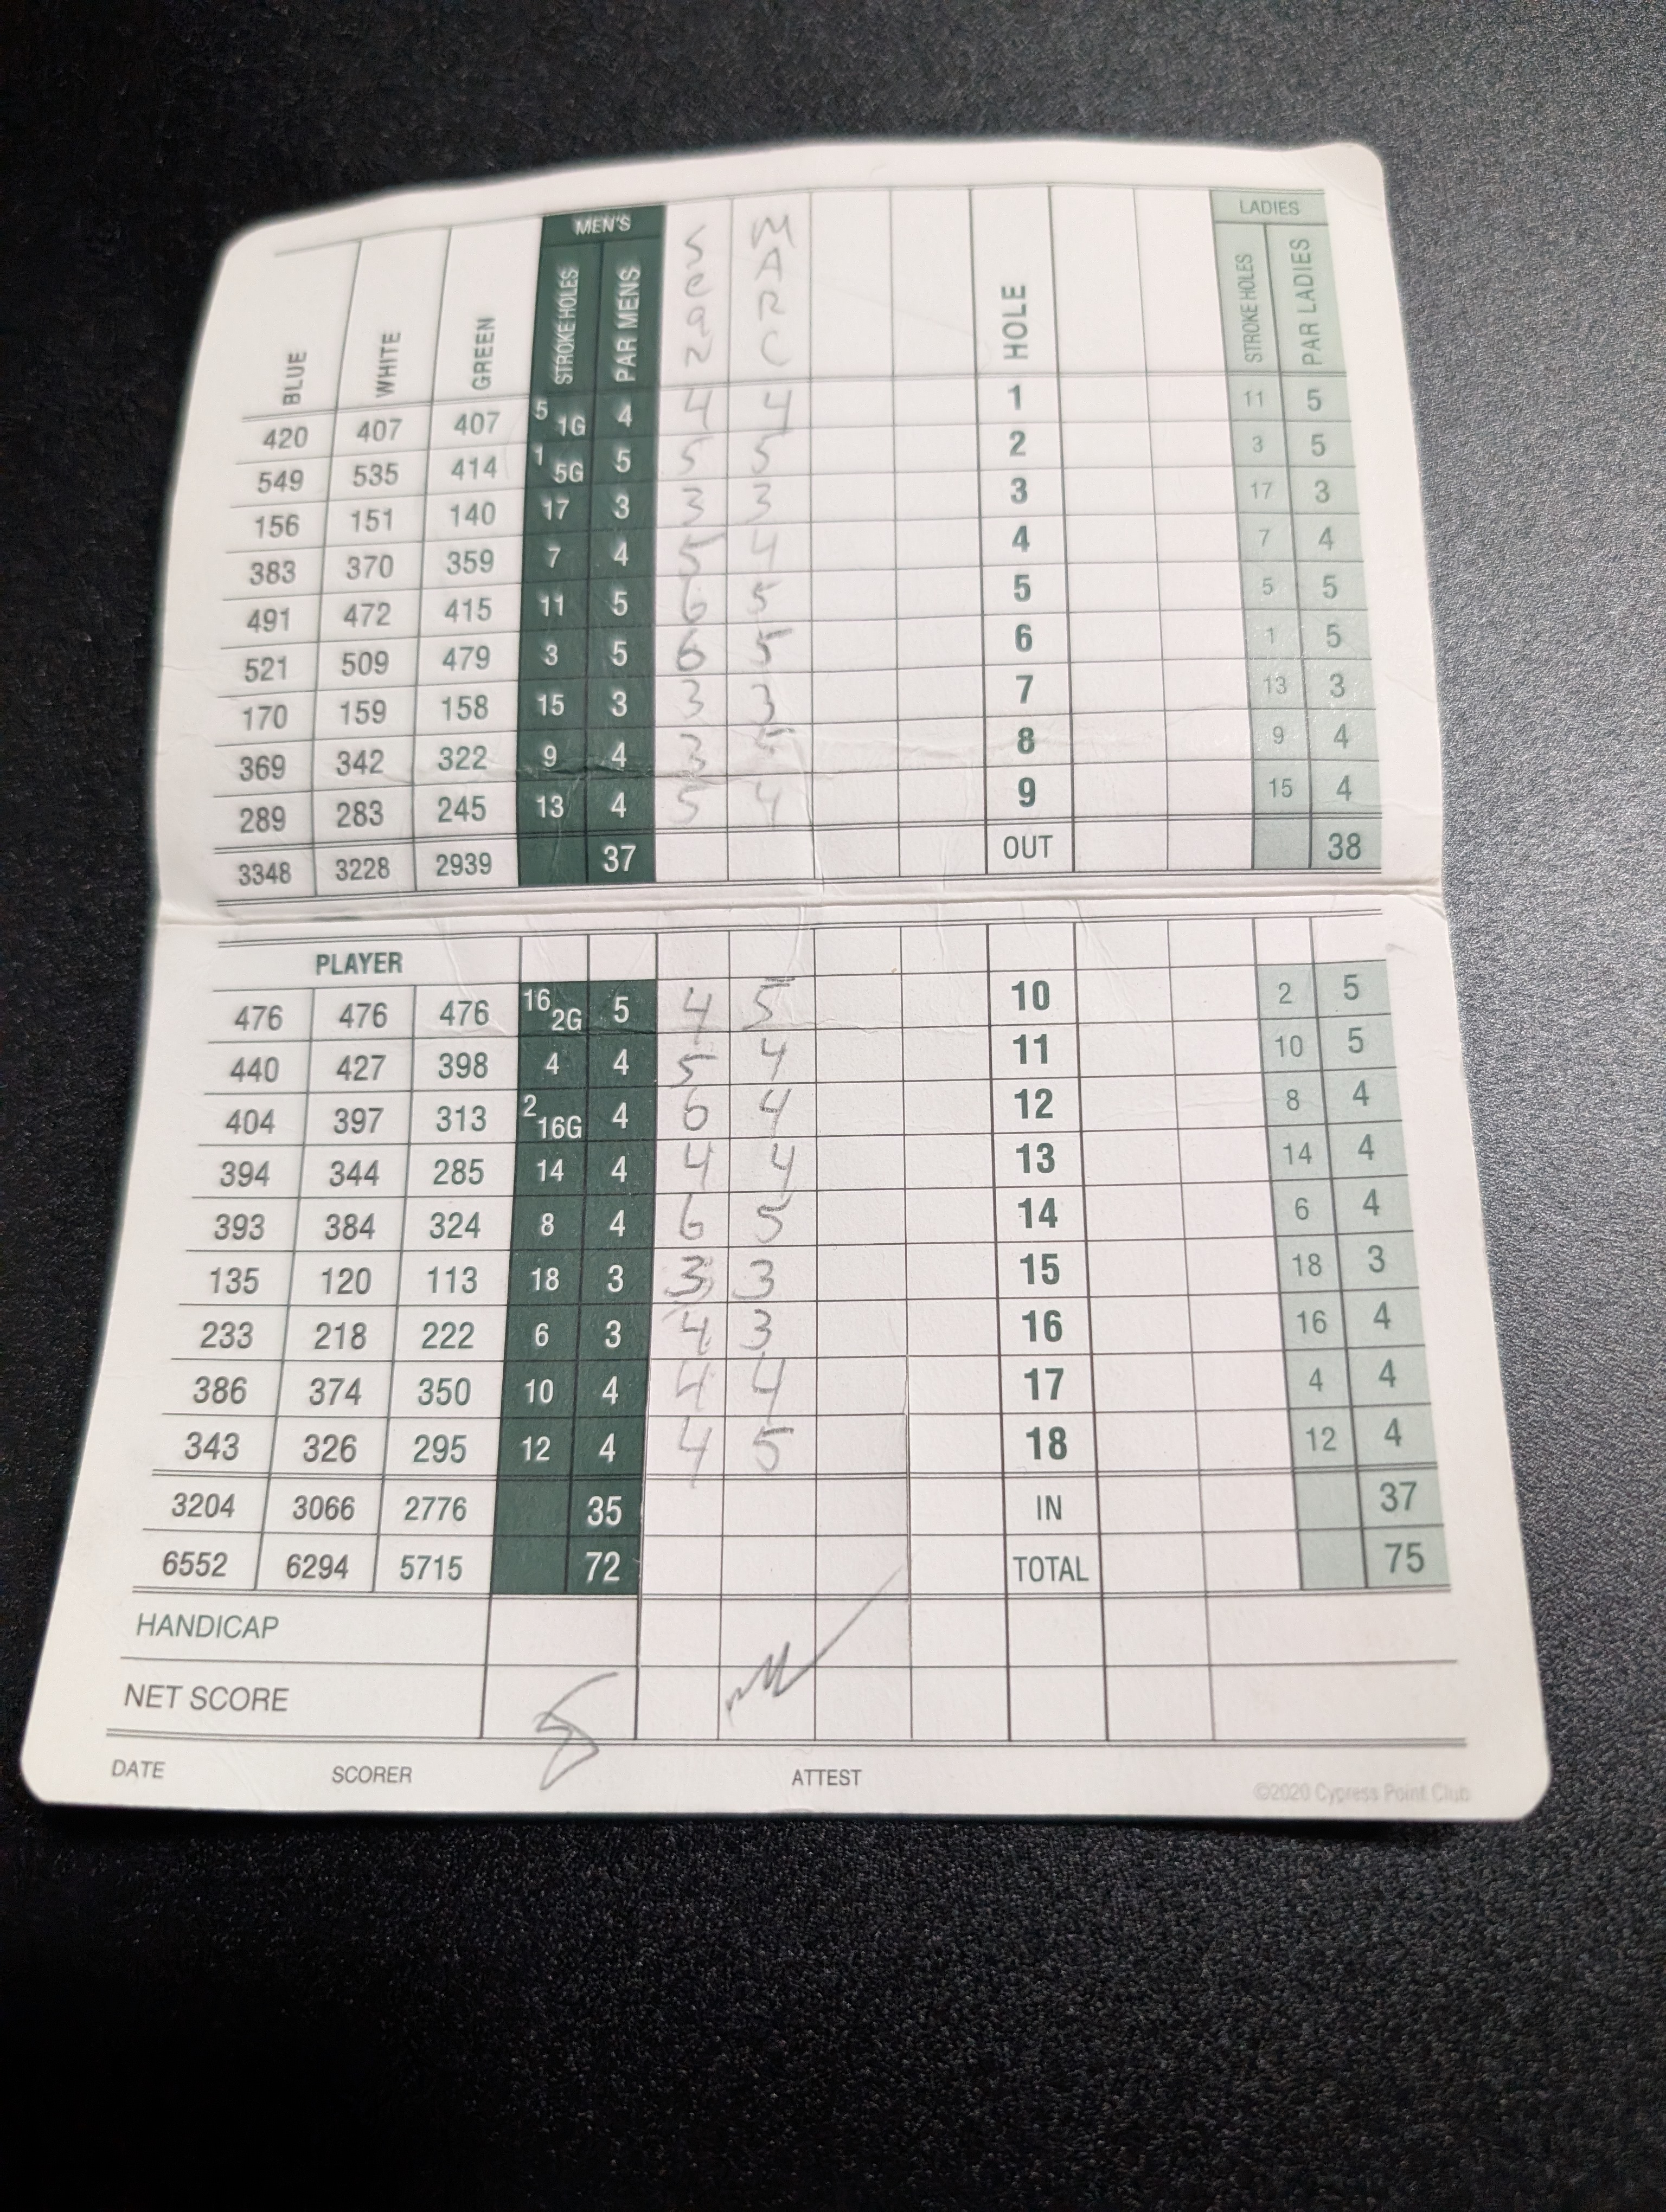 MEN'S LADIES
BLUE WHITE GREEN STROKE HOLES PAR MENS Sean MARC HOLE STROKE HOLES PAR LADIES
420 407 407 5 1G 4 4 4 1 11 5
549 535 414 1 5G 5 5 5 2 3 5
156 151 140 17 3 3 3 3 17 3
383 370 359 7 4 5 4 4 7 4
491 472 415 11 5 6 5 5 5 5
521 509 479 3 5 6 5 6 1 5
170 159 158 15 3 3 3 7 13 3
369 342 322 9 4 3 5 8 9 4
289 283 245 13 4 5 4 9 15 4
3348 3228 2939 37 OUT 38
PLAYER
476 476 476 16 2G 5 4 5 10 2 5
440 427 398 4 4 5 4 11 10 5
404 397 313 2 16G 4 6 4 12 8 4
394 344 285 14 4 4 4 13 14 4
393 384 324 8 4 6 5 14 6 4
135 120 113 18 3 3 3 15 18 3
233 218 222 6 3 4 3 16 16 4
386 374 350 10 4 4 4 17 4 4
343 326 295 12 4 4 5 18 12 4
3204 3066 2776 35 IN 37
6552 6294 5715 72 TOTAL 75
HANDICAP
NET SCORE
DATE SCORER ATTEST
©2020 Cypress Point Club